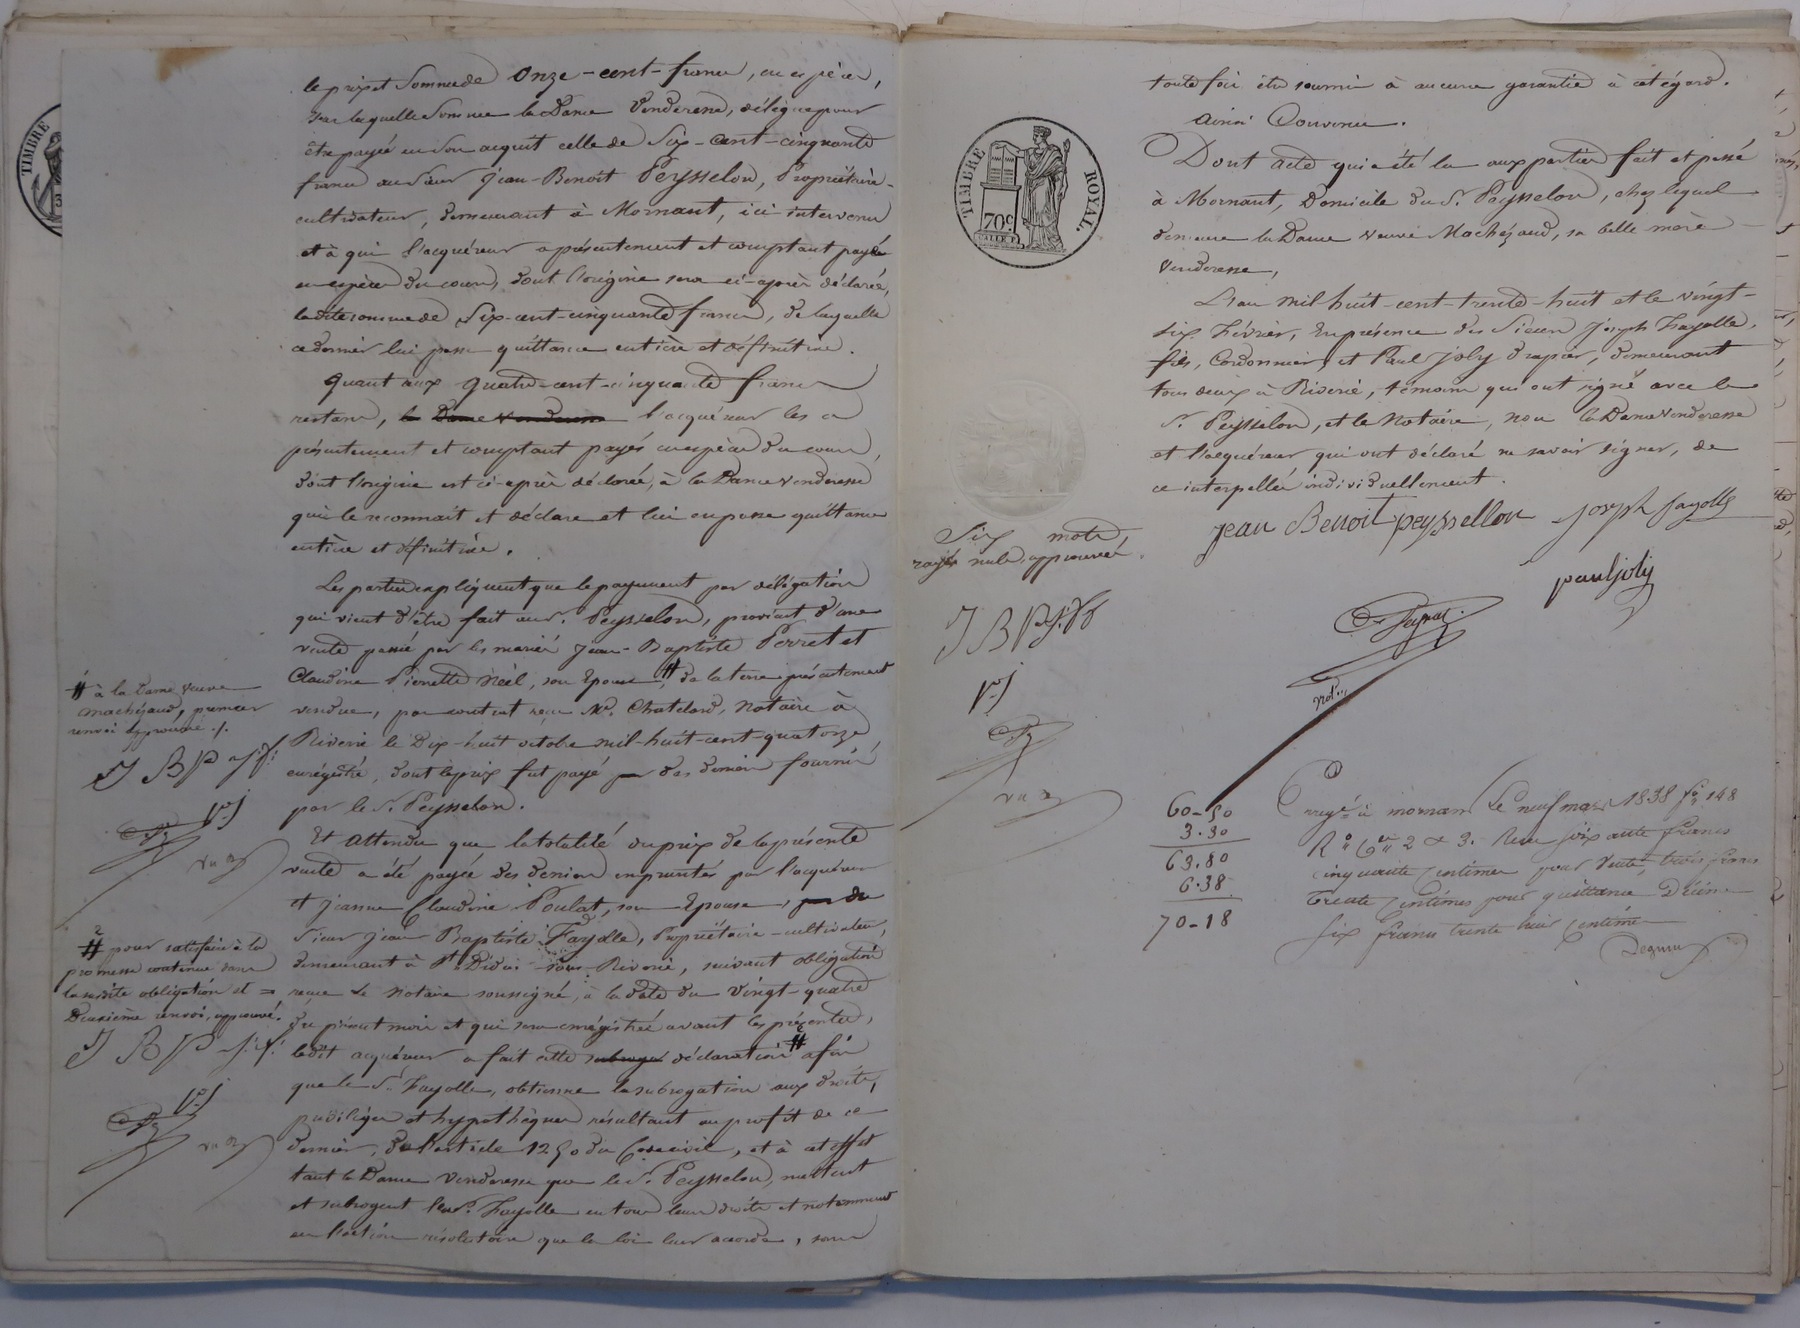 le prix et Somme de Onze-cent-francs, en espèces,
sur laquelle somme la Dame Venderesse, délègue pour
être payée en son acquit celle de Six-cent-cinquante
francs au Sieur Jean-Benoît Peysselon, Propriétaire-
cultivateur, demeurant à Mornant, ici intervenu
et à qui l'acquéreur a présentement et comptant payé
en espèces du cours, dont l'origine sera ci-après déclarée,
ladite somme de Six-cent-cinquante francs, de laquelle
ce dernier lui passe quittance entière et définitive.
Quant aux Quatre-cent-cinquante francs
restans, la Dame venderesse l'acquéreur les a
présentement et comptant payés en espèces du cours,
dont l'origine est ci-après déclarée, à la Dame venderesse
qui le reconnaît et déclare et lui en passe quittance
entière et définitive.
Les parties expliquent que le payement par délégation
qui vient d'être fait au Sr. Peysselon, provient d'une
vente passée par les mariés Jean-Baptiste Perret et
Claudine Pierrette Néel, son Epouse, # de la terre présentement
vendue, par contrat reçu Me. Chatelard, Notaire à
Riverie le Dix-huit octobre mil-huit-cent-quatorze
enrégistré, dont le prix fut payé par des deniers fournis
par le Sr. Peysselon.
Et attendu que la totalité du prix de la présente
vente a été payée des deniers empruntés par l'acquéreur
et Jeanne Claudine Poulat, son Epouse, par du
Sieur Jean Baptiste Fayolle, Propriétaire-cultivateur,
demeurant à St. Didier-sous-Riverie, suivant obligation
reçue Le Notaire soussigné, à la date du Vingt-quatre
du présent mois et qui sera enrégistrée avant les présentes,
ledit acquéreur a fait cette subrogé déclaration # afin
que le Sr. Fayolle, obtienne la subrogation aux droits,
privilèges et hypothèques résultant au profit de ce
dernier, de l'article 1250 du Code civil, et à cet effet
tant la Dame Venderesse que le Sr. Peysselon, mettent
et subrogent led. Sr. Fayolle en tous leurs droits et notamment
en l'action résolutoire que la loi leur accorde, sans
# à la Dame Veuve
Machézaud, premier
renvoi approuvé ./.
J B P J. f.
p. j
# 2 pour satisfaire à la
promesse contenue dans
la susdite obligation et =
Deuxième renvoi, approuvé.
J B P J. f.
p. j
TIMBRE
toute fois être soumis à aucune garantie à cet égard.
Ainsi Convenu.
Dont acte qui a été lu aux parties fait et passé
à Mornant, Domicile du Sr. Peysselon, chez lequel
demeure la Dame veuve Machézaud, sa belle mère
Venderesse,
L'an mil huit-cent-trente-huit et le vingt-
six Février, En présence des Sieurs Joseph Fayolle,
fils, Cordonnier, et Paul Joly drapier, demeurant
tous deux à Riverie, témoins qui ont signé avec le
Sr. Peysselon, et le Notaire, non la Dame Venderesse
et l'acquéreur qui ont déclaré ne savoir signer, de
ce interpellés individuellement.
TIMBRE ROYAL.
70c.
Six mots
rayés nuls approuvés.
J B P J. f
p. j
jean Benoit peyssellon joseph fayolle
paul joly
not.
60-50
3.30
63.80
6.38
70-18
Enregé. à mornant Le neuf mars 1838 fo. 148
Ro. Ces. 2 & 3. Reçu soixante francs
cinquante centimes pour Vente, trois francs
trente centimes pour quittance, Dixième
six francs trente huit centimes